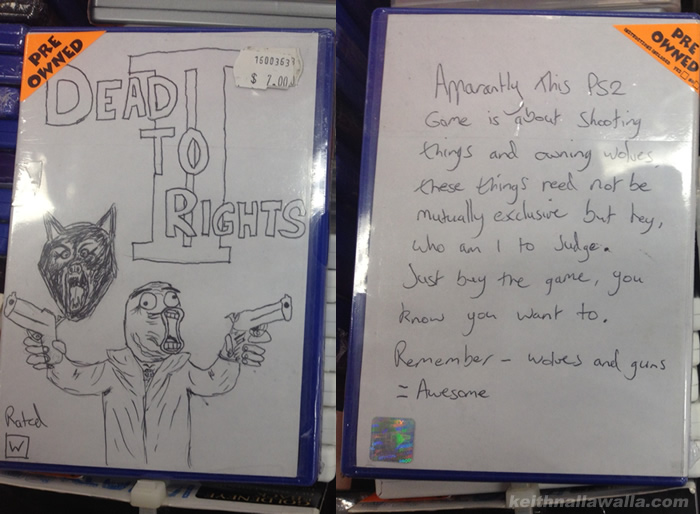 PRE
OWNED
16003633
$ 7.00
DEAD
TO
RIGHTS
II
Rated
W
PRE
OWNED
Apparantly this PS2
Game is about shooting
things and owning wolves,
these things need not be
mutually exclusive but hey,
who am I to Judge.
Just buy the game, you
know you want to.
Remember - wolves and guns
= Awesome
keithnallawalla.com